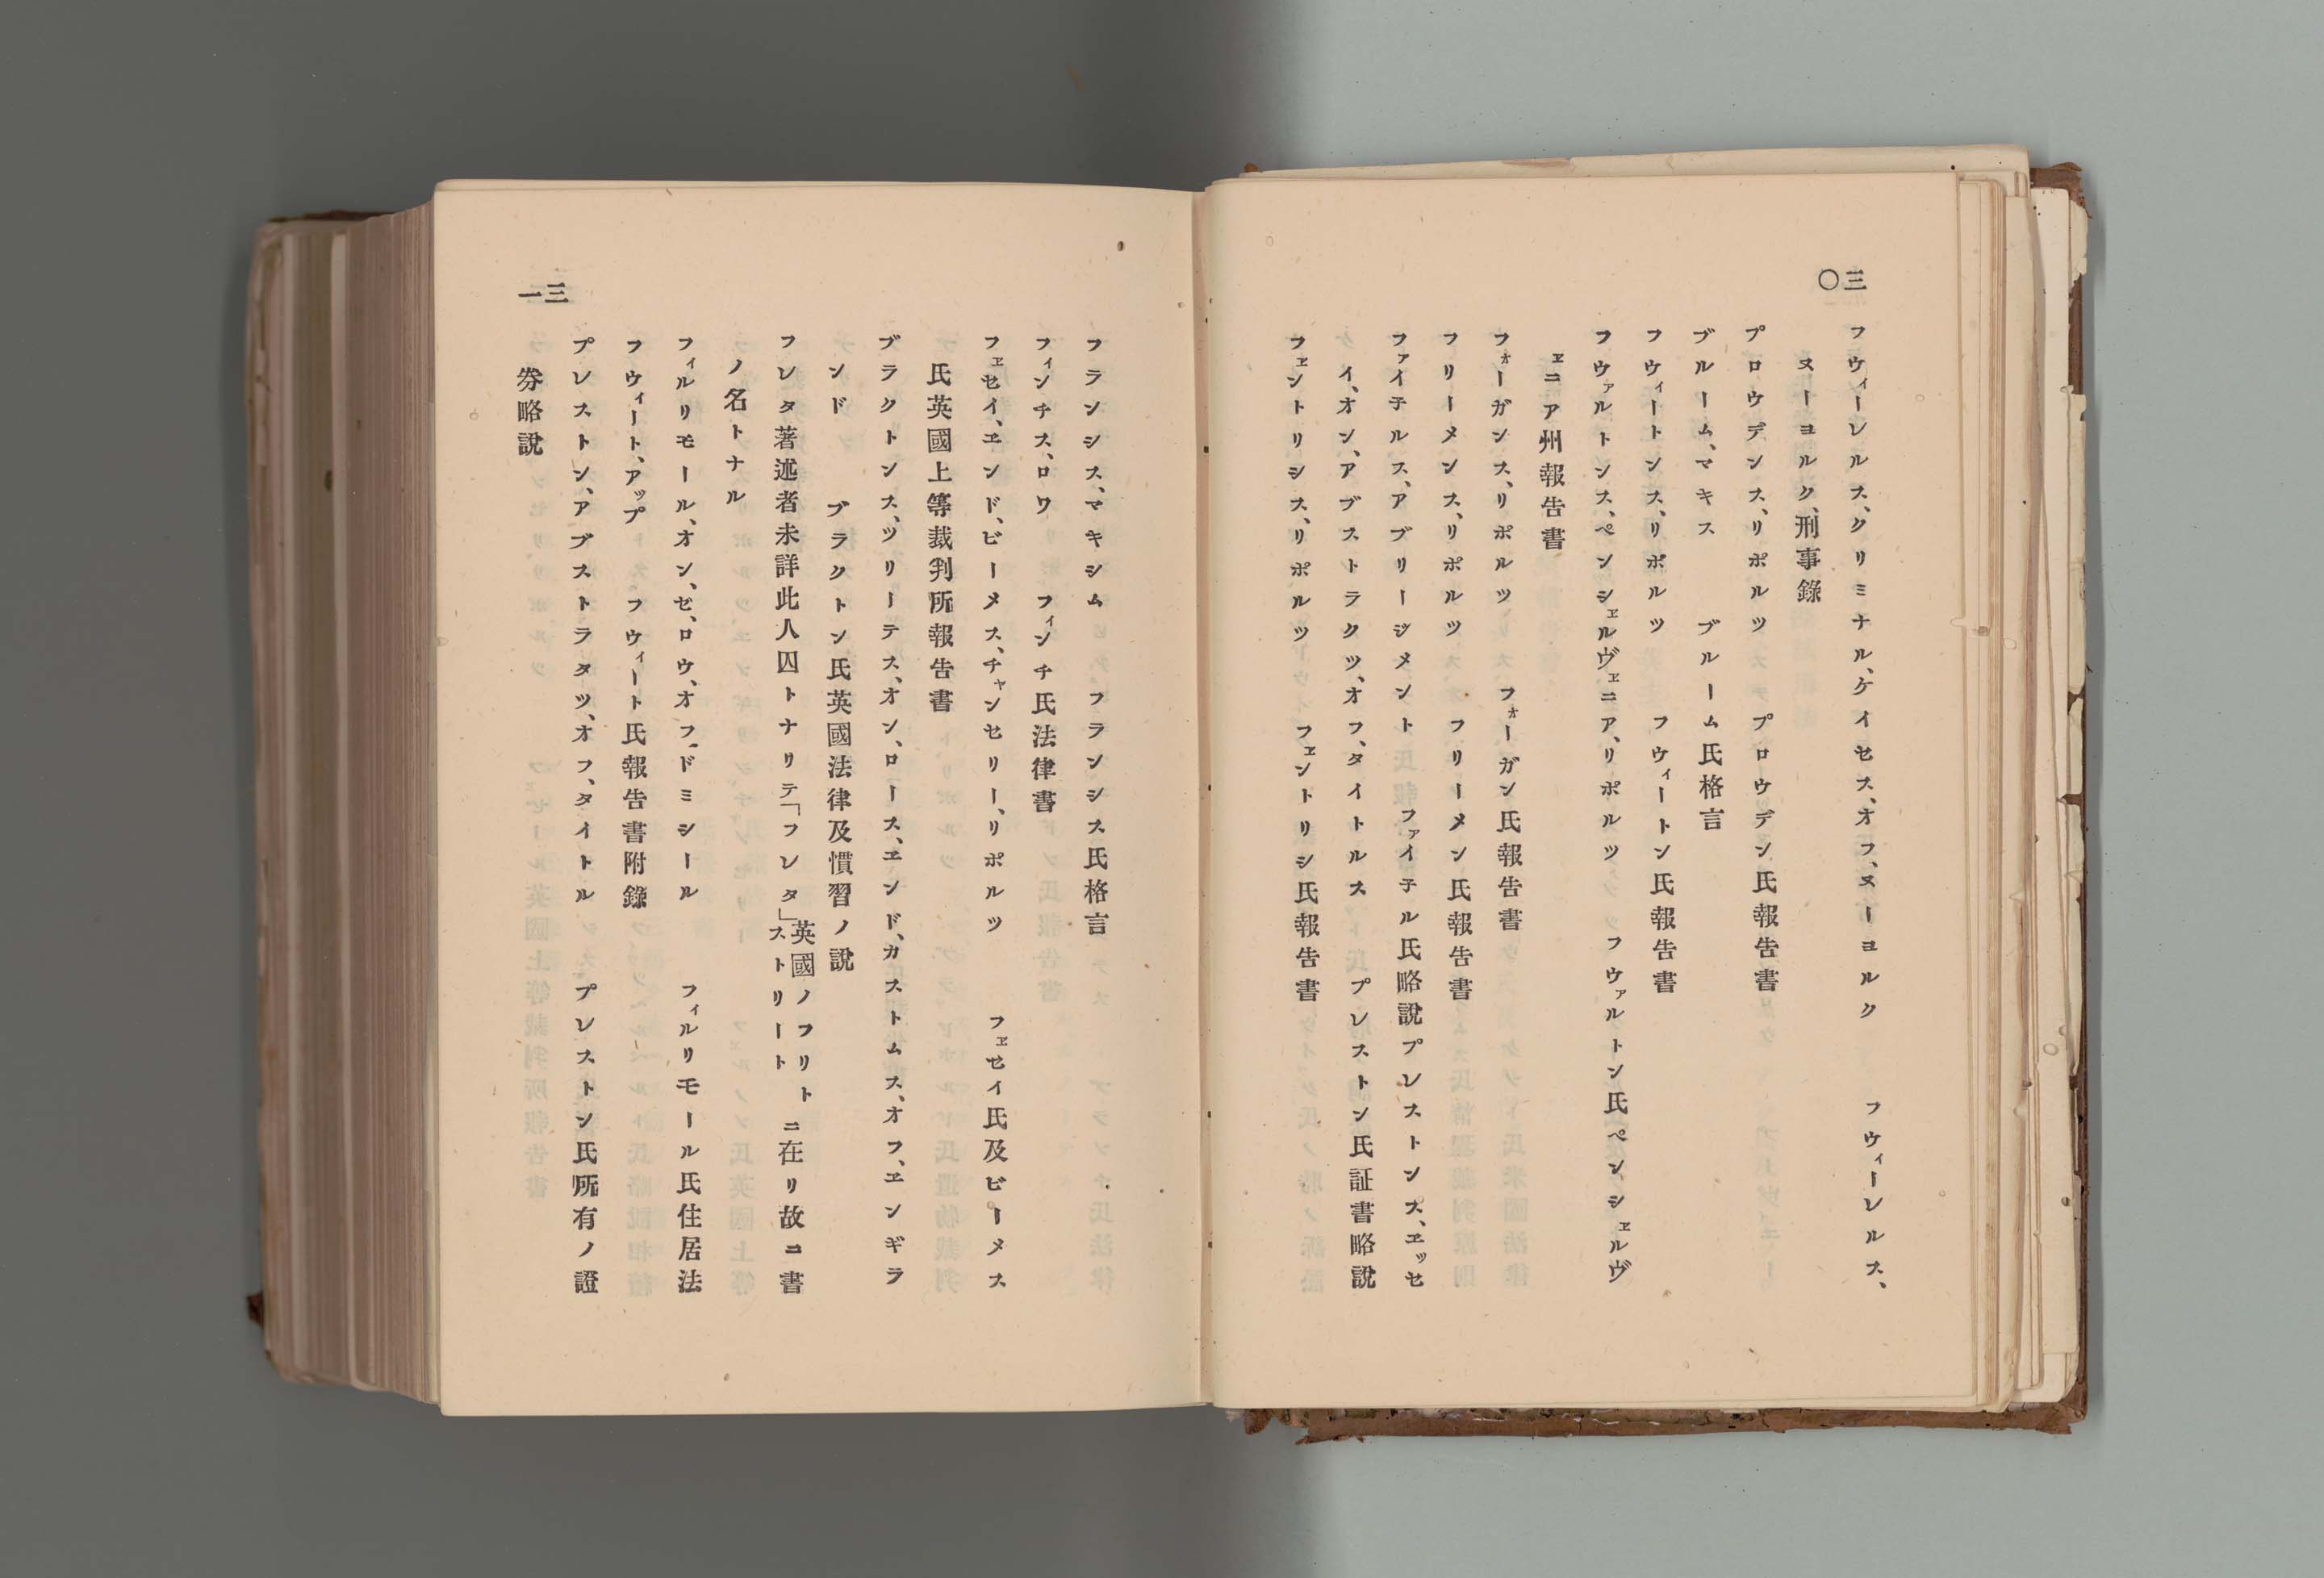 三〇
フウィーレルス、クリミナル、ケイセス、オフ、ヌーヨルク　フウィーレルス、
ヌーヨルク、刑事錄
プロウデンス、リポルツ　プロウデン氏報告書
ブルーム、マキス　ブルーム氏格言
フウィートンス、リポルツ　フウィートン氏報告書
フウァルトンス、ペンシヱルヴヱニア、リポルツ　フウァルトン氏ペン、シヱルヴ
ヱニア州報告書
フォーガンス、リポルツ　フォーガン氏報告書
フリーメンス、リポルツ　フリーメン氏報告書
ファイ子ルス、アブリージメント　ファイ子ル氏略說プレストンス、ヱッセ
イ、オン、アブストラクツ、オフ、タイトルス　プレストン氏証書略說
フヱントリシス、リポルツ　フヱントリシ氏報告書
三一
フランシス、マキシム　フランシス氏格言
フィンチス、ロワ　フィンチ氏法律書
フヱセイ、ヱンド、ビーメス、チャンセリー、リポルツ　フヱセイ氏及ビーメス
氏英國上等裁判所報告書
ブラクトンス、ツリーテス、オン、ロース、ヱンド、カストムス、オフ、ヱンギラ
ンド　ブラクトン氏英國法律及慣習ノ說
フレタ著述者未詳此人囚トナリテ「フレタ」英國ノフリトストリートニ在リ故ニ書
ノ名トナル
フィルリモール、オン、ゼ、ロウ、オフ、ドミシール　フィルリモール氏住居法
フウィート、アップ　フウィート氏報告書附錄
プレストン、アブストラタツ、オフ、タイトル　プレストン氏所有ノ證
券略說